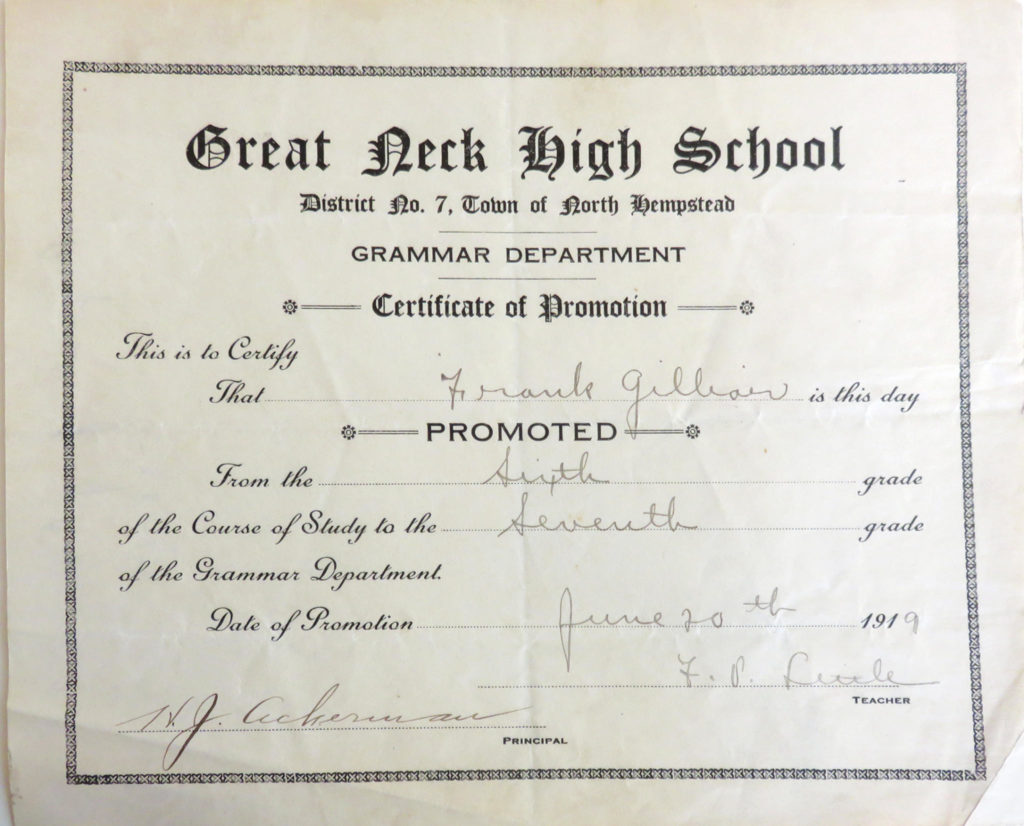 Great Neck High School
District No. 7, Town of North Hempstead
GRAMMAR DEPARTMENT
Certificate of Promotion
This is to Certify
That Frank is this day
PROMOTED
From the Sixth grade
of the Course of Study to the Seventh grade
of the Grammar Department.
Date of Promotion June 20th 1919
F. P.
TEACHER
H. J. Ackerman
PRINCIPAL